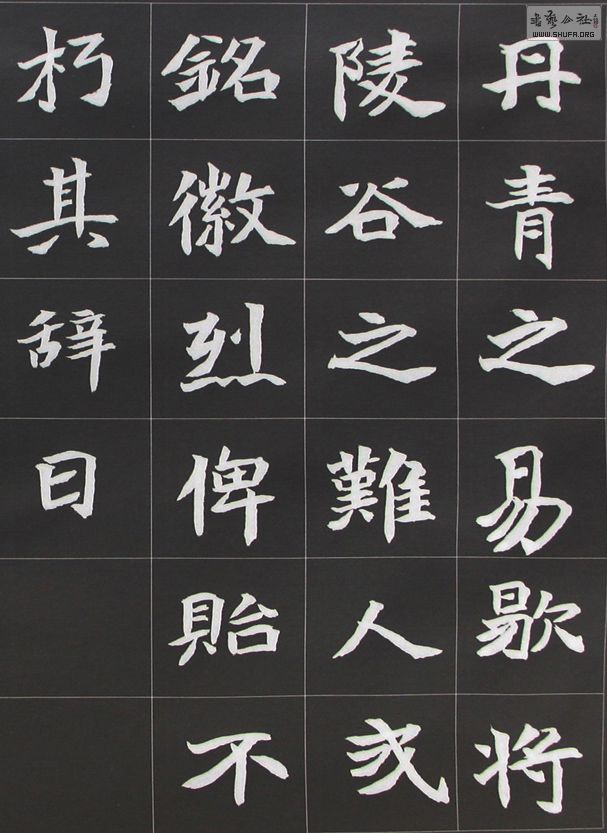 丹青之易歇将
陵谷之難久式
銘徽烈俾貽不
朽其辞曰
書藝公社
WWW.SHUFA.ORG